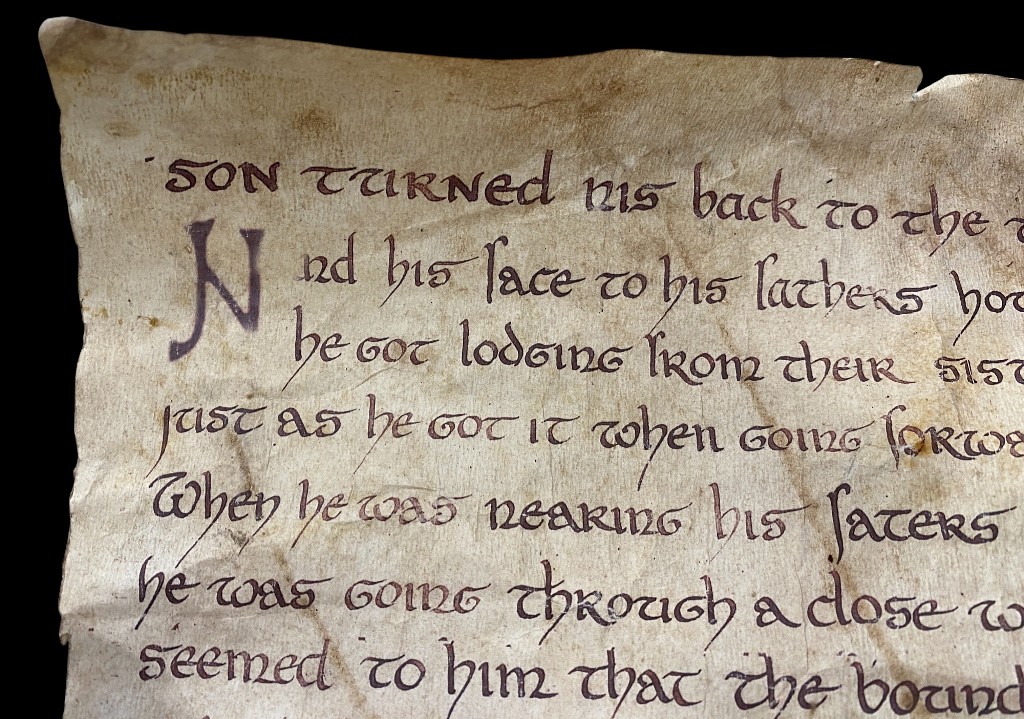 son turned his back to the
And his face to his fathers hou
he got lodging from their sist
just as he got it when going forwa
When he was nearing his faters
he was going through a close w
seemed to him that the bound